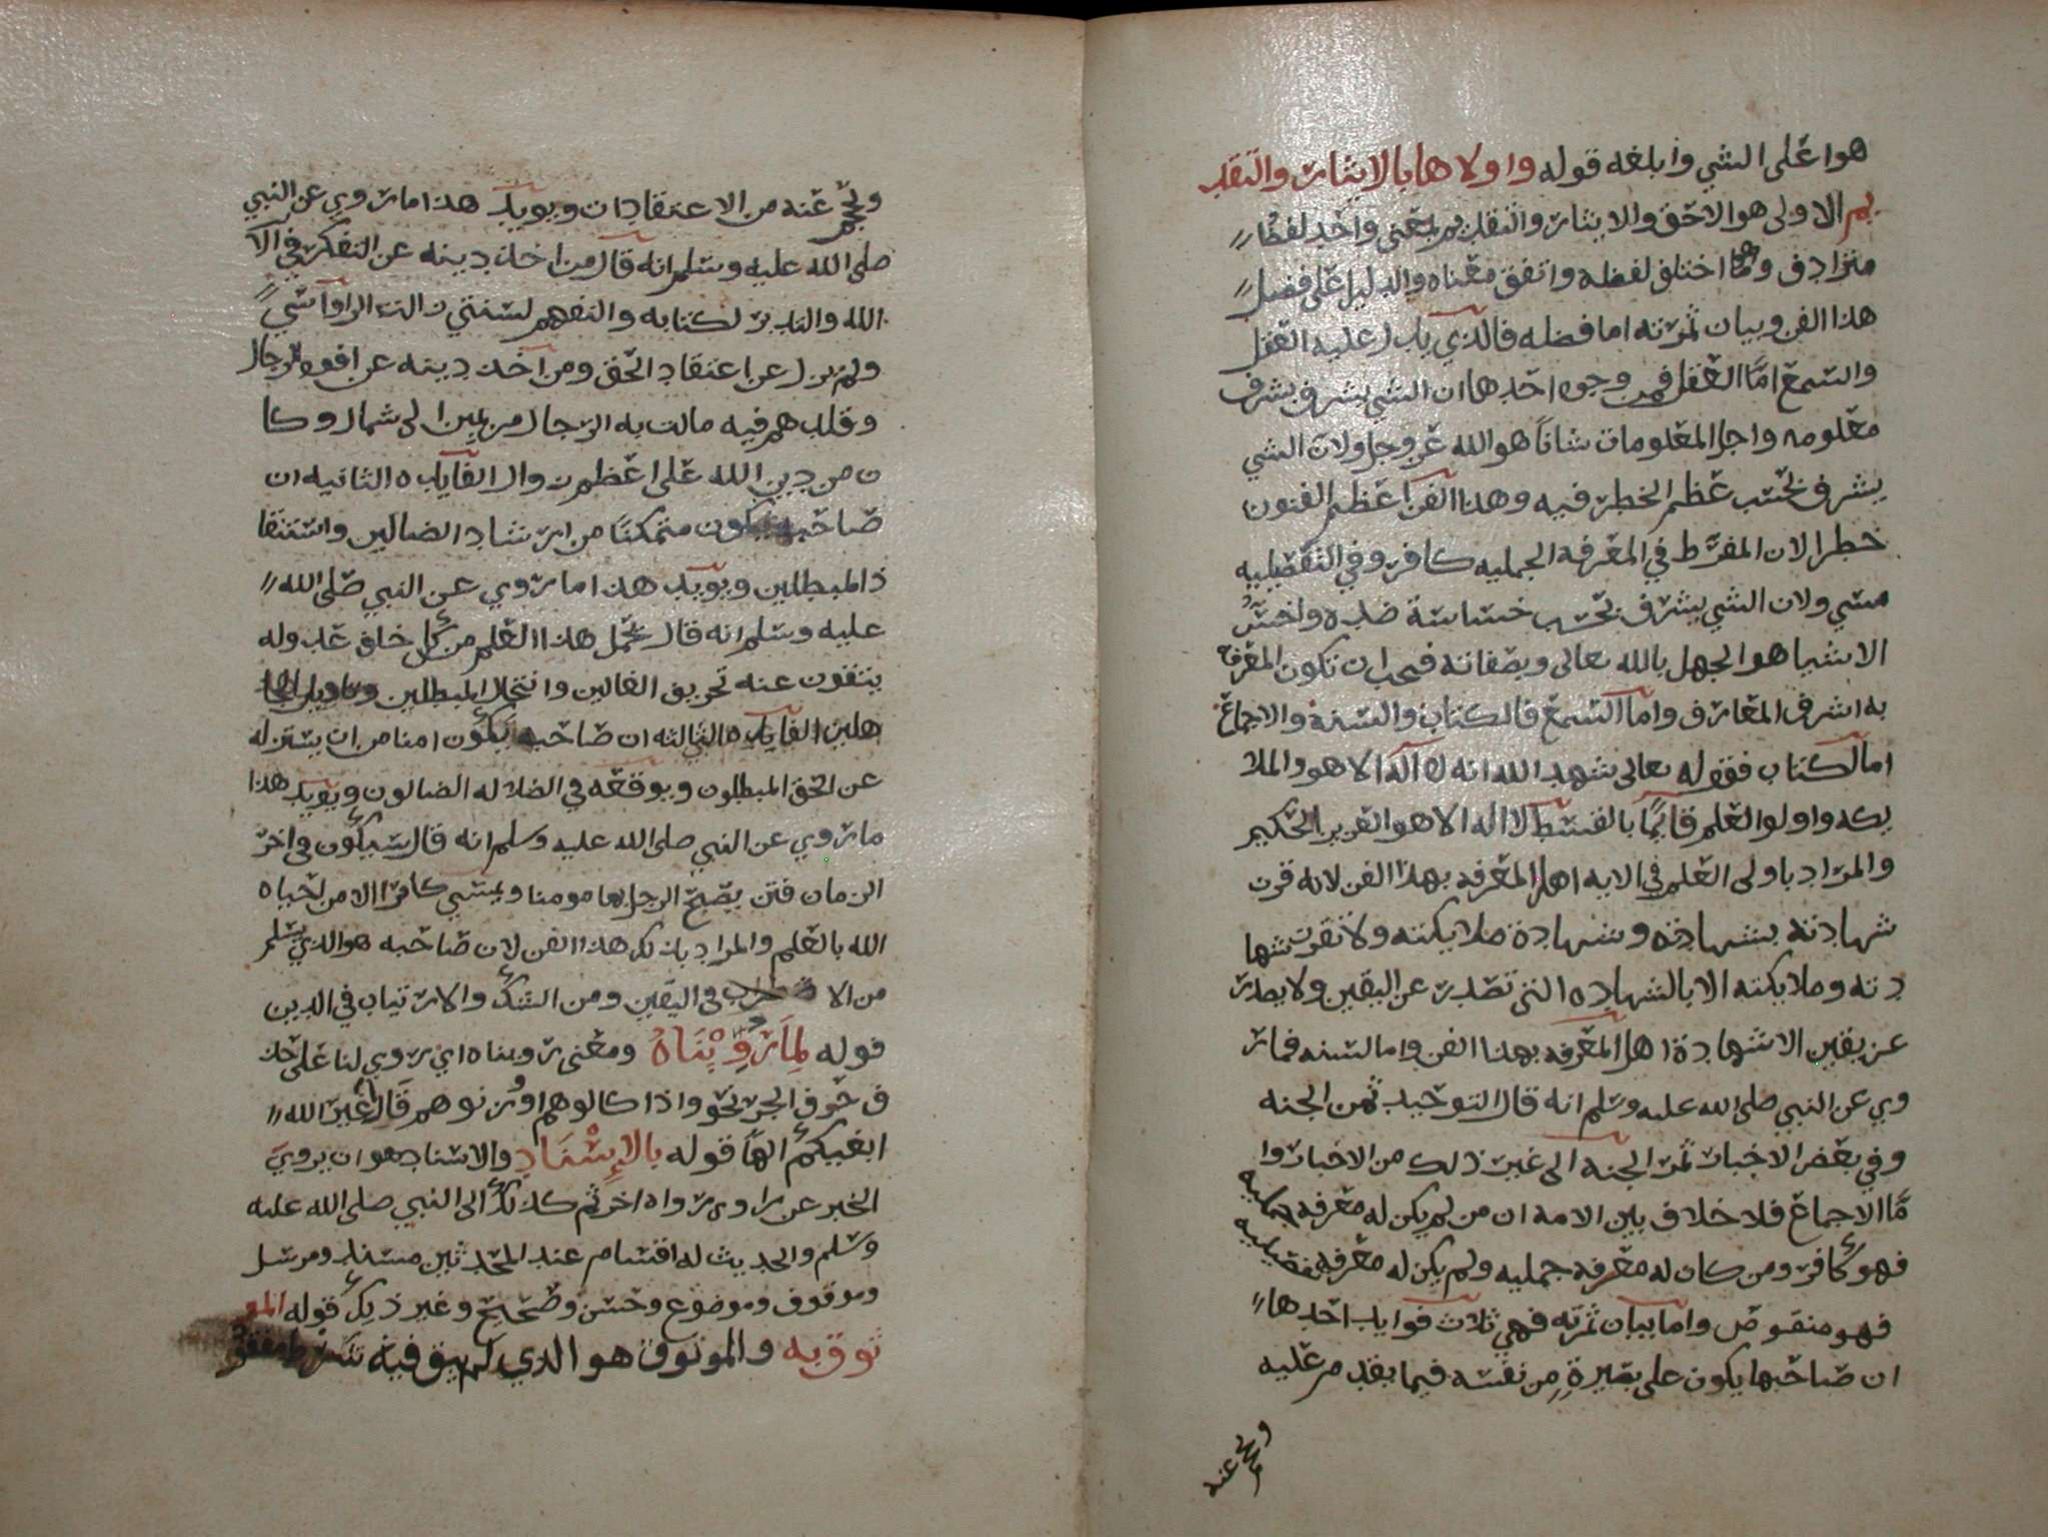 هو اعلى الشي وابلغه قوله واولاها بالايثار والتقد
يم الاولى هو الاحق والايثار والتقديم بمعنى واحد لفظا
مترادف وهما اختلف لفظه واتفق معناه والدليل على فضل
هذا الفن وبيان ثمرته اما فضله فالذي يدل عليه العقل
والسمع امّا العقل فمن وجوه احدها ان الشي يشرف بشرف
معلومه واجل المعلومات شاناً هو الله عز وجل ولان الشي
يشرف بحسب عظم الخطر فيه وهذا الفن اعظم الفنون
خطرا لان المفرّط في المعرفه الجمليه كافر وفي التفصيليه
مسي ولان الشي يشرف بحسب خساسة ضده واخسّ
الاشيا هو الجهل بالله تعالى وبصفاته فيجب ان تكون المعرفة
به اشرف المعارف واما السمع فالكتاب والسنه والاجماع
اما الكتاب فقوله تعالى شهد الله انه لا اله الا هو والملا
يكه واولوا العلم قايمًا بالقسط لا اله الا هو العزيز الحكيم
والمراد باولى العلم في الايه اهل المعرفه بهذا الفن لانه قرن
شهادته بشهادته وشهادة ملايكته ولا تقرن شها
دته وملايكته الا بالشهاده التي تصدر عن اليقين ولا يصدر
عن يقين الا شهادة اهل المعرفه بهذا الفن واما السنه فما ر
وي عن النبي صلى الله عليه وسلم انه قال التوحيد ثمن الجنه
وفي بعض الاخبار ثمن الجنه الى غير ذلك من الاخبار وا
مّا الاجماع فلا خلاف بين الامه ان من لم يكن له معرفه جمليه
فهو كافر ومن كان له معرفه جمليه ولم يكن له معرفه تفصيليه
فهو منقوص واما بيان ثمرته فهي ثلاث فوايد احدها
ان صاحبها يكون على بصيرةٍ من نفسه فيما يقدم عليه
ويحجم عنه
ويحجم عنه من الاعتقادات ويويد هذا ما روي عن النبي
صلى الله عليه وسلم انه قال من اخذ دينه عن التفكر في الآ
الله والتدبر لكتابه والتفهم لسنتي زالت الرواسي
ولم يزل عن اعتقاد الحق ومن اخذ دينه عن افواه الرجال
وقلدهم فيه مالت به الرجال من يمين الى شمال وكا
ن من دين الله على اعظم زوال الفايده الثانيه ان
صاحبه يكون متمكنًا من ارشاد الضالين واستنقا
ذ المبطلين ويويد هذا ما روي عن النبي صلى الله
عليه وسلم انه قال يحمل هذا العلم من كل خلق عدوله
ينفون عنه تحريف الغالين وانتحال المبطلين وتاويل الجا
هلين الفايده الثالثه ان صاحبه يكون امنا من ان يستزله
عن الحق المبطلون ويوقعه في الضلاله الضالون ويويد هذا
ما روي عن النبي صلى الله عليه وسلم انه قال سيكون في اخر
الزمان فتن يصبح الرجل بها مومنا ويمسي كافرا الا من احياه
الله بالعلم والمراد بذلك هذا الفن لان صاحبه هو الذي يسلم
من الاضطراب في اليقين ومن الشك والارتياب في الدين
قوله لِمَا رُوِّينَاهُ ومعنى رويناه اي روي لنا على حذ
ف حرف الجر نحو واذا كالوهم او وزنوهم قال اغير الله
ابغيكم الهًا قوله بِالإِسْنَادِ والاسناد هو ان يروي
الخبر عن راوى رواه اخر ثم كذلك الى النبي صلى الله عليه
وسلم والحديث له اقسام عند المحدثين مسند ومرسل
وموقوف وموضوع وحسن وصحيح وغير ذلك قوله المو
ثوق به والموثوق هو الذي لم يبق فيه شرط مفقو